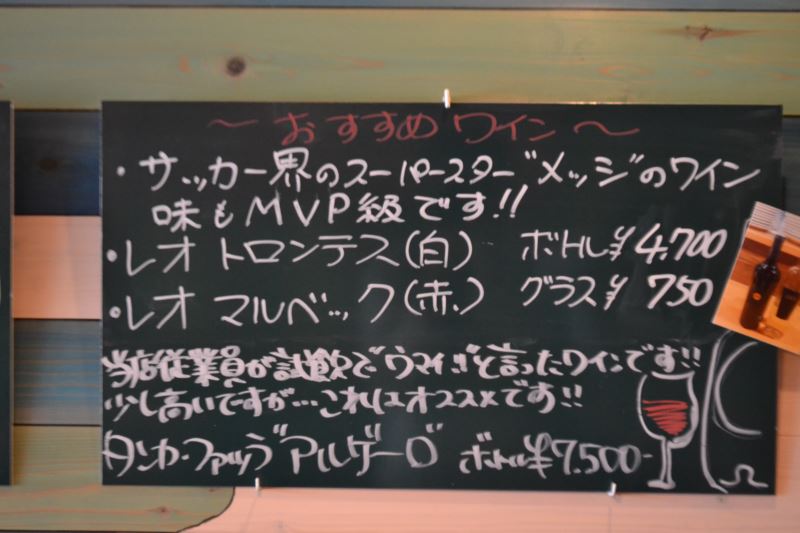 ～おすすめワイン～
・サッカー界のスーパースター"メッシ"のワイン
味もMVP級です!!
・レオ トロンテス(白) ボトル¥4.700
・レオ マルベック(赤) グラス¥750
当店従業員が試飲でウマイ!!と言ったワインです!!
少し高いですが…これはオススメです!!
"アルゲーロ" ボトル¥7.500-